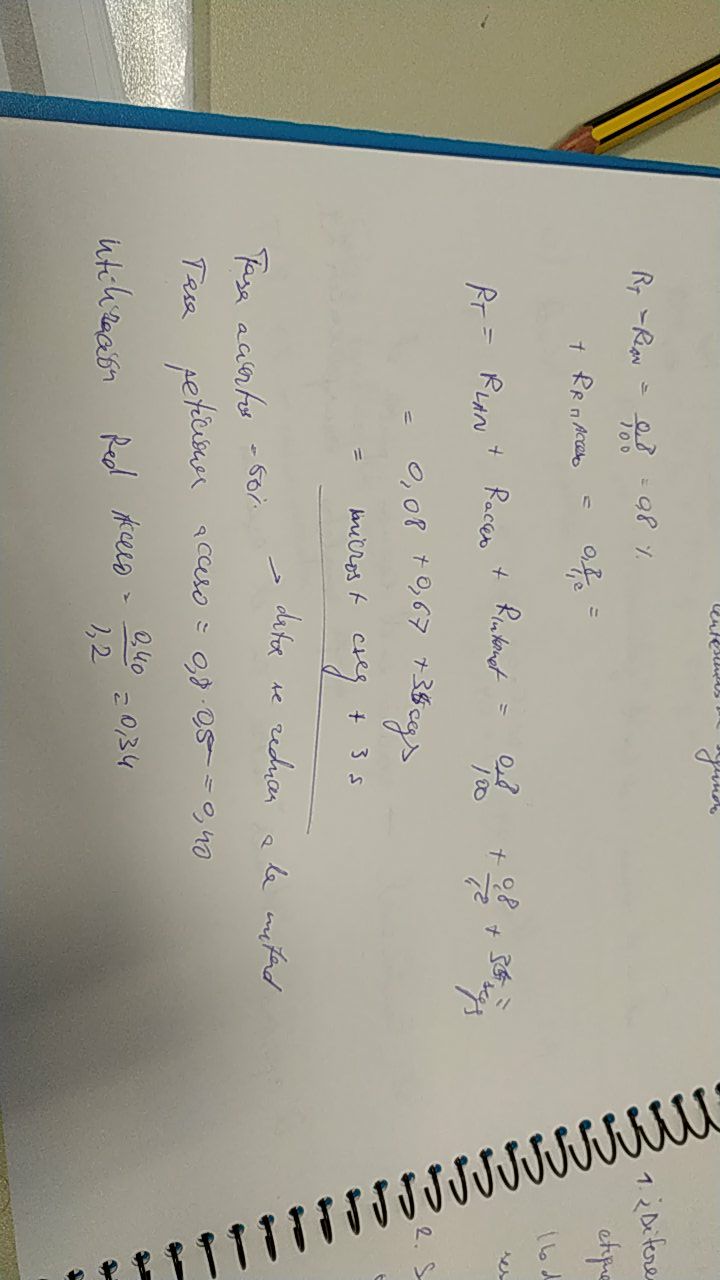 centésimas de segundo
R_T - R_LAN = 0,8/100 = 0,8 %
+ R Acceso = 0,8/1,2 =
R_T = R_LAN + R_acceso + R_Internet = 0,8/100 + 0,8/1,2 + 3 segs =
= 0,08 + 0,67 + 3 segs
= micros + cseg + 3 s
Tasa aciertos = 50% → datos se reducen a la mitad
Tasa peticiones acceso = 0,8 · 0,5 = 0,40
Utilización Red Acceso = 0,40/1,2 = 0,34
1. ¿Difere
etique
(lo d
res
2. S